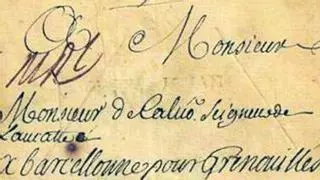 Monsieur
Monsieur de Calvo Seigneur de
a barcellonne pour Grenouilles